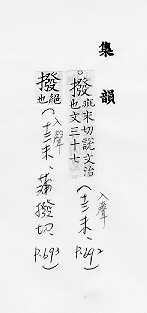 集韻
。撥 北末切說文治
也文三十七
(十三末、P.692)
入聲
撥 絕
也
(十三末、蒲撥切、P.693)
入聲